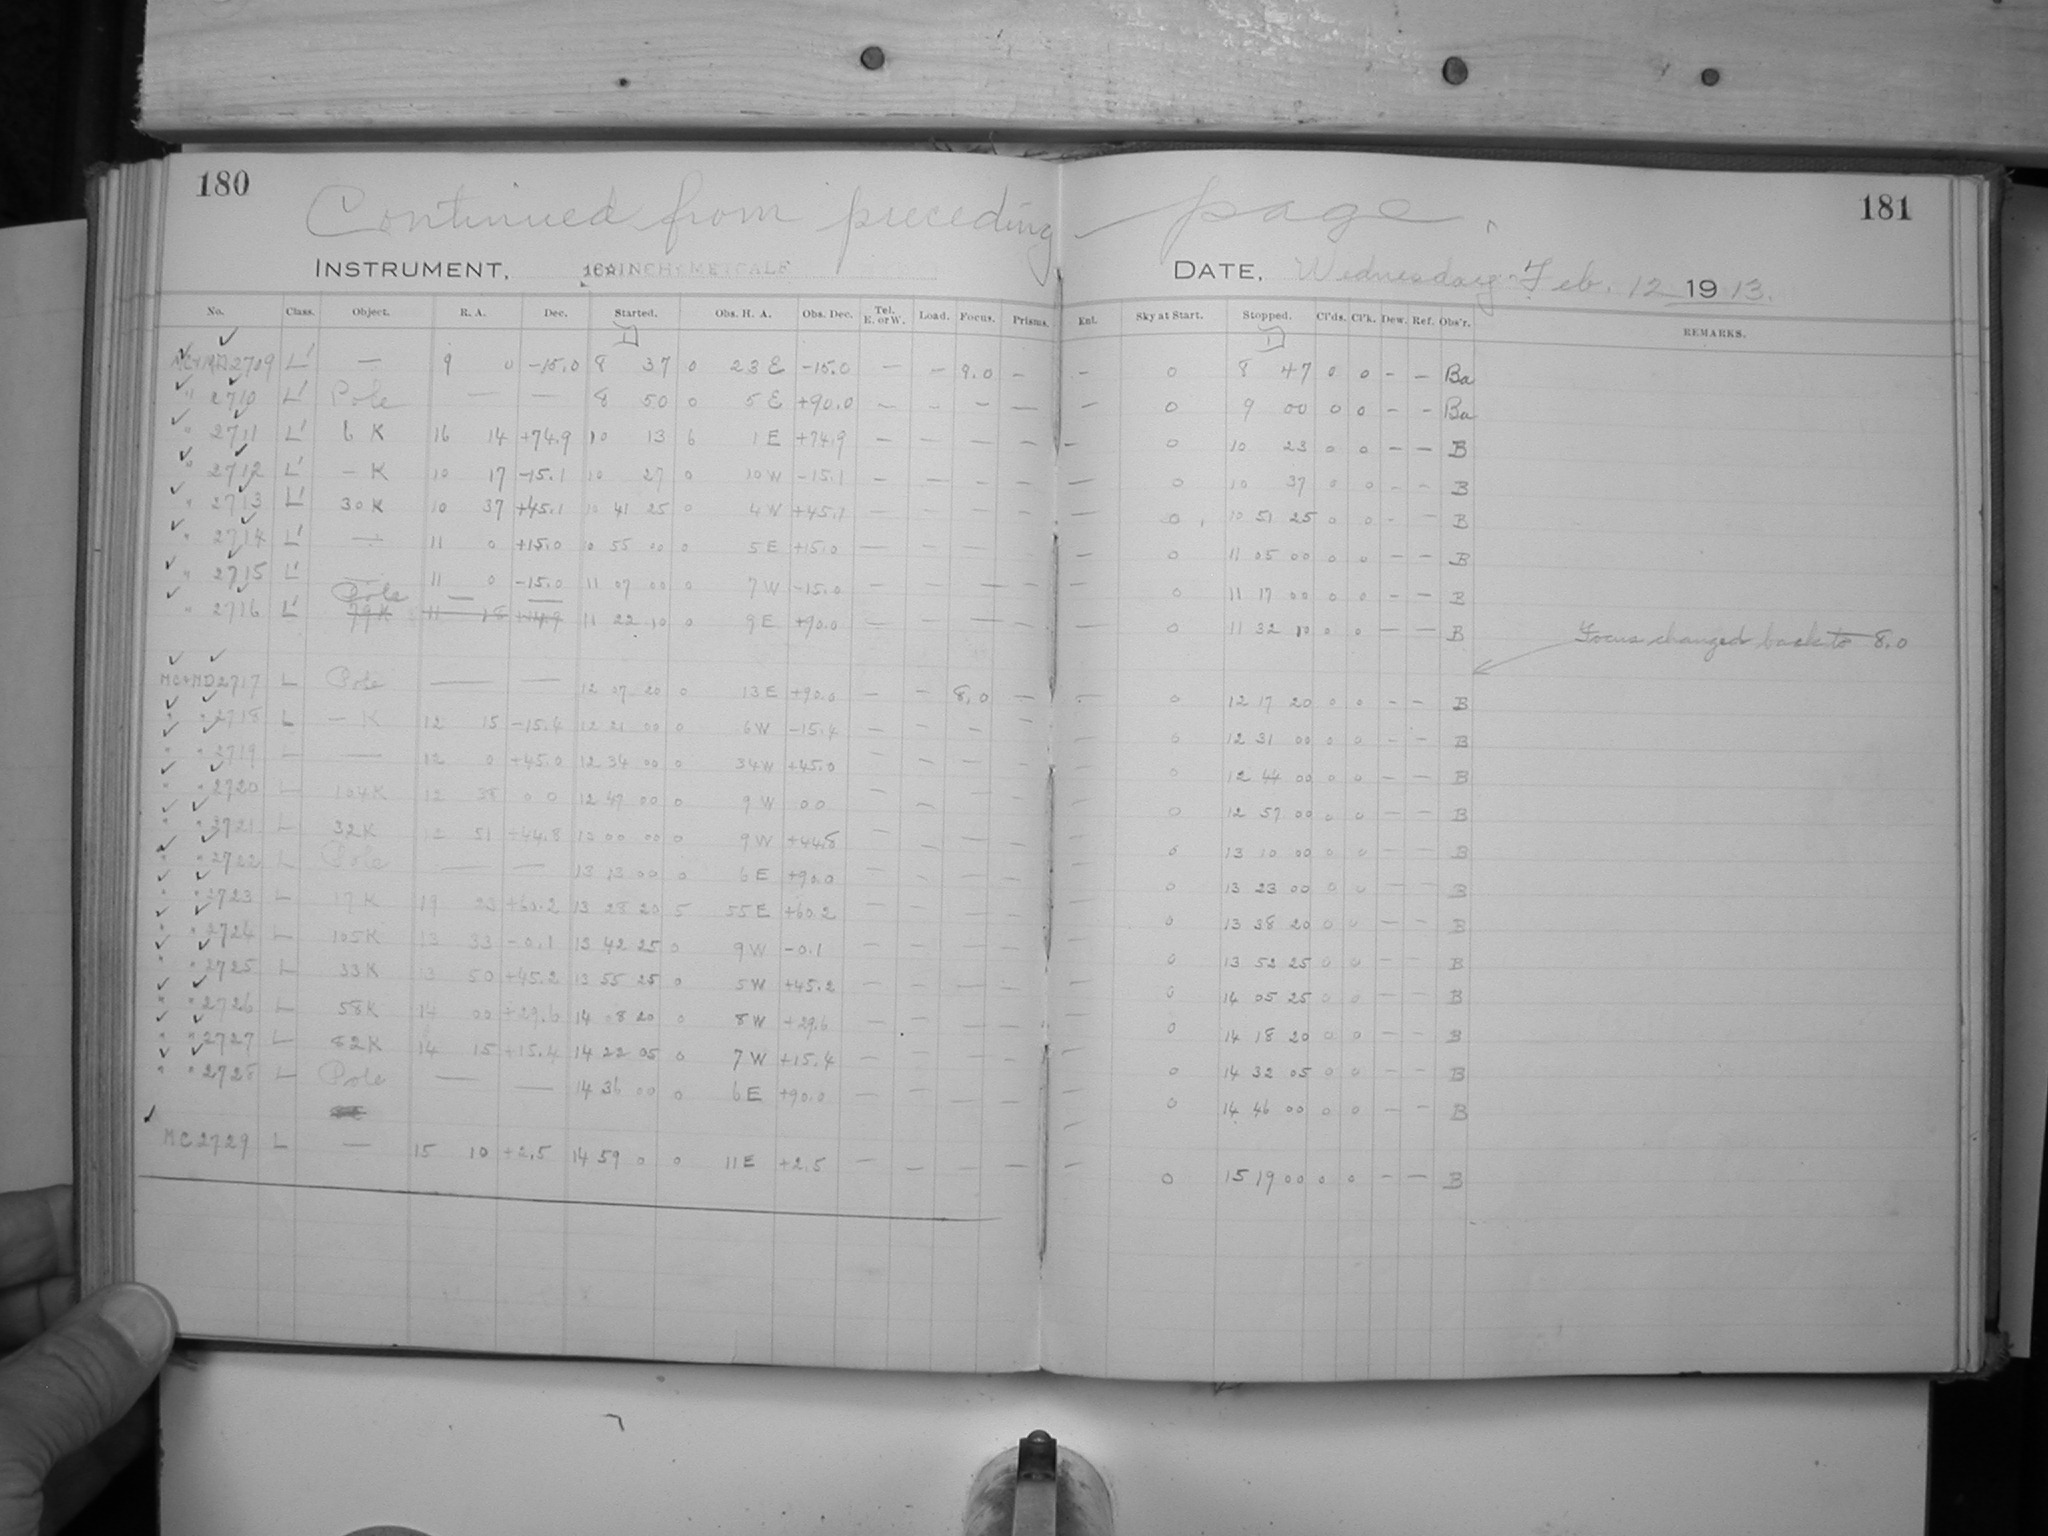 180
181
Continued from preceding page.
INSTRUMENT, 16 INCH METCALF
DATE, Wednesday Feb. 12 1913.
No. Class. Object. R. A. Dec. Started. Obs. H. A. Obs. Dec. Tel. E. or W. Load. Focus. Prisms. Ent. Sky at Start. Stopped. Cl'ds. Cl'k. Dew. Ref. Obs'r. REMARKS.
MC+MD2709 L' — 9 0 -15.0 8 37 0 23 E -15.0 — — 9.0 — — 0 8 47 0 0 — — Ba
" 2710 L' Pole — — 8 50 0 5 E +90.0 — — — — — 0 9 00 0 0 — — Ba
" 2711 L' 6 K 16 14 +74.9 10 13 6 1 E +74.9 — — — — — 0 10 23 0 0 — — B
" 2712 L' — K 10 17 -15.1 10 27 0 10 W -15.1 — — — — — 0 10 37 0 0 — — B
" 2713 L' 30 K 10 37 +45.1 10 41 25 0 4 W +45.1 — — — — — 0 10 51 25 0 0 — — B
" 2714 L' — 11 0 +15.0 10 55 00 0 5 E +15.0 — — — — — 0 11 05 00 0 0 — — B
" 2715 L' — 11 0 -15.0 11 07 00 0 7 W -15.0 — — — — — 0 11 17 00 0 0 — — B
Pole — —
" 2716 L' 79K 11 18 11 22 10 0 9 E +90.0 — — — — — 0 11 32 10 0 0 — — B
Focus changed back to 8.0
MC+MD2717 L Pole — — 12 07 20 0 13 E +90.0 — — 8.0 — — 0 12 17 20 0 0 — — B
" " 2718 L — K 12 15 -15.4 12 21 00 0 6 W -15.4 — — — — — 0 12 31 00 0 0 — — B
" " 2719 L — 12 0 +45.0 12 34 00 0 34 W +45.0 — — — — — 0 12 44 00 0 0 — — B
" 2720 L 104K 12 38 0 0 12 47 00 0 9 W 0 0 — — — — — 0 12 57 00 0 0 — — B
" " 2721 L 32K 12 51 +44.8 13 00 00 0 9 W +44.8 — — — — — 0 13 10 00 0 0 — — B
" " 2722 L Pole — — 13 13 00 0 6 E +90.0 — — — — — 0 13 23 00 0 0 — — B
" " 2723 L 17 K 19 23 +60.2 13 28 20 5 55 E +60.2 — — — — — 0 13 38 20 0 0 — — B
" " 2724 L 105K 13 33 -0.1 13 42 25 0 9 W -0.1 — — — — — 0 13 52 25 0 0 — — B
" " 2725 L 33K 13 50 +45.2 13 55 25 0 5 W +45.2 — — — — — 0 14 05 25 0 0 — — B
" " 2726 L 58K 14 00 +29.6 14 08 20 0 8 W +29.6 — — — — — 0 14 18 20 0 0 — — B
" " 2727 L 82K 14 15 +15.4 14 22 05 0 7 W +15.4 — — — — — 0 14 32 05 0 0 — — B
" " 2728 L Pole — — 14 36 00 0 6 E +90.0 — — — — — 0 14 46 00 0 0 — — B
MC 2729 L — 15 10 +2.5 14 59 0 0 11 E +2.5 — — — — — 0 15 19 00 0 0 — — B